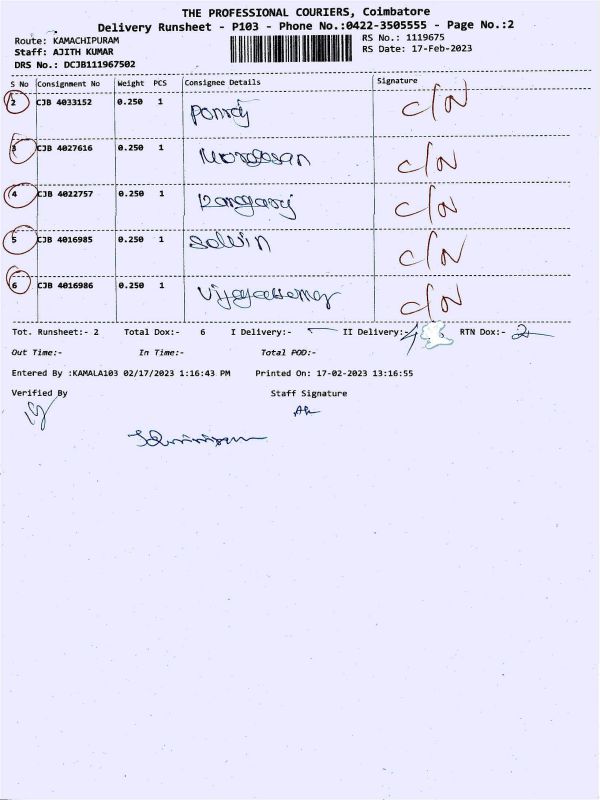 THE PROFESSIONAL COURIERS, Coimbatore
Delivery Runsheet - P103 - Phone No.:0422-3505555 - Page No.:2
Route: KAMACHIPURAM RS No.: 1119675
Staff: AJITH KUMAR RS Date: 17-Feb-2023
DRS No.: DCJB111967502
S No Consignment No Weight PCS Consignee Details Signature
2 CJB 4033152 0.250 1 Ponraj C/N
3 CJB 4027616 0.250 1 C/N
4 CJB 4022757 0.250 1 C/N
5 CJB 4016985 0.250 1 Selvin C/N
6 CJB 4016986 0.250 1 C/N
Tot. Runsheet:- 2 Total Dox:- 6 I Delivery:- II Delivery:- 4 RTN Dox:- 2
Out Time:- In Time:- Total POD:-
Entered By :KAMALA103 02/17/2023 1:16:43 PM Printed On: 17-02-2023 13:16:55
Verified By Staff Signature